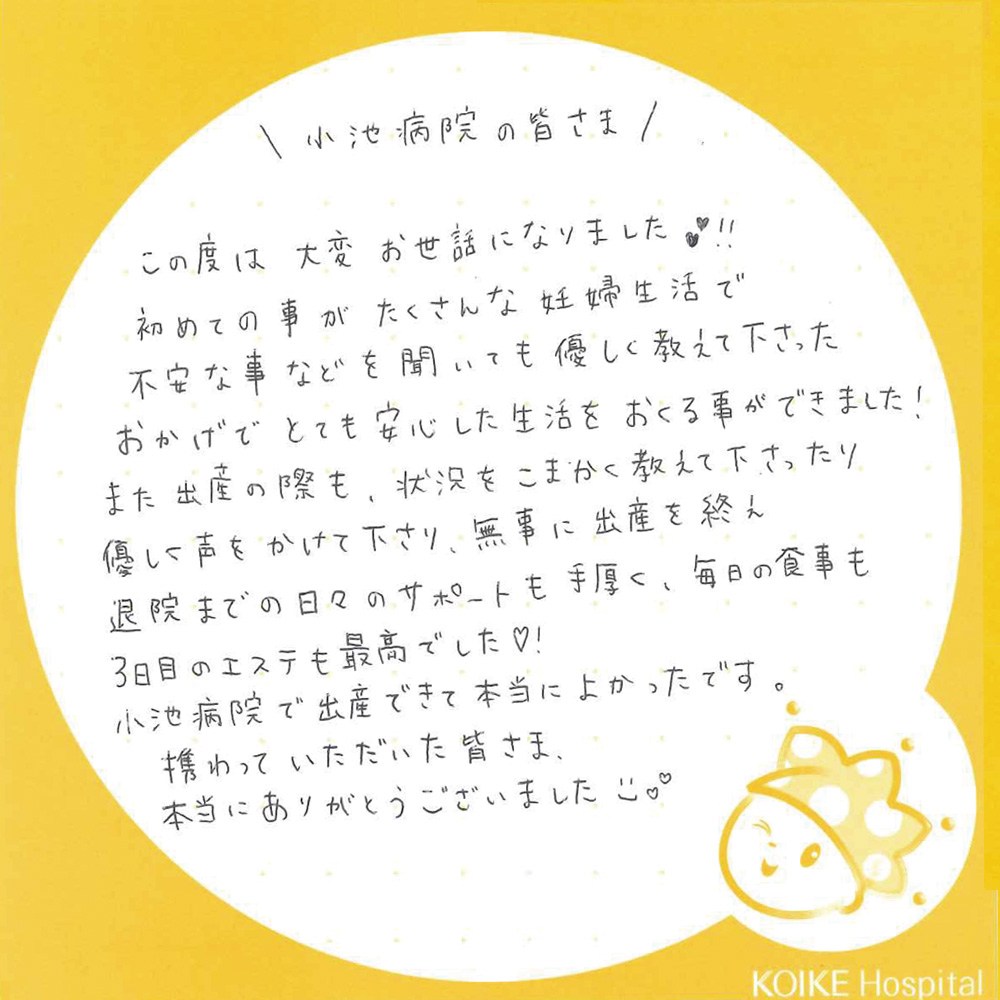 \ 小池病院の皆さま /
この度は 大変 お世話になりました💕!!
初めての事が たくさんな 妊婦生活で
不安な事などを聞いても優しく教えて下さった
おかげで とても安心した生活を おくる事ができました!
また出産の際も、状況をこまかく教えて下さったり
優しく声をかけて下さり、無事に出産を終え
退院までの日々のサポートも手厚く、毎日の食事も
3日目のエステも最高でした♡!
小池病院で出産できて本当によかったです。
携わっていただいた皆さま、
本当にありがとうございました
KOIKE Hospital